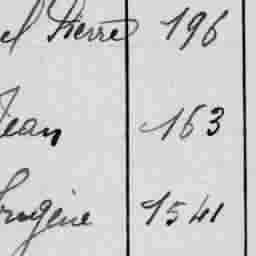 el Pierre 196
Jean 163
Eugène 1541